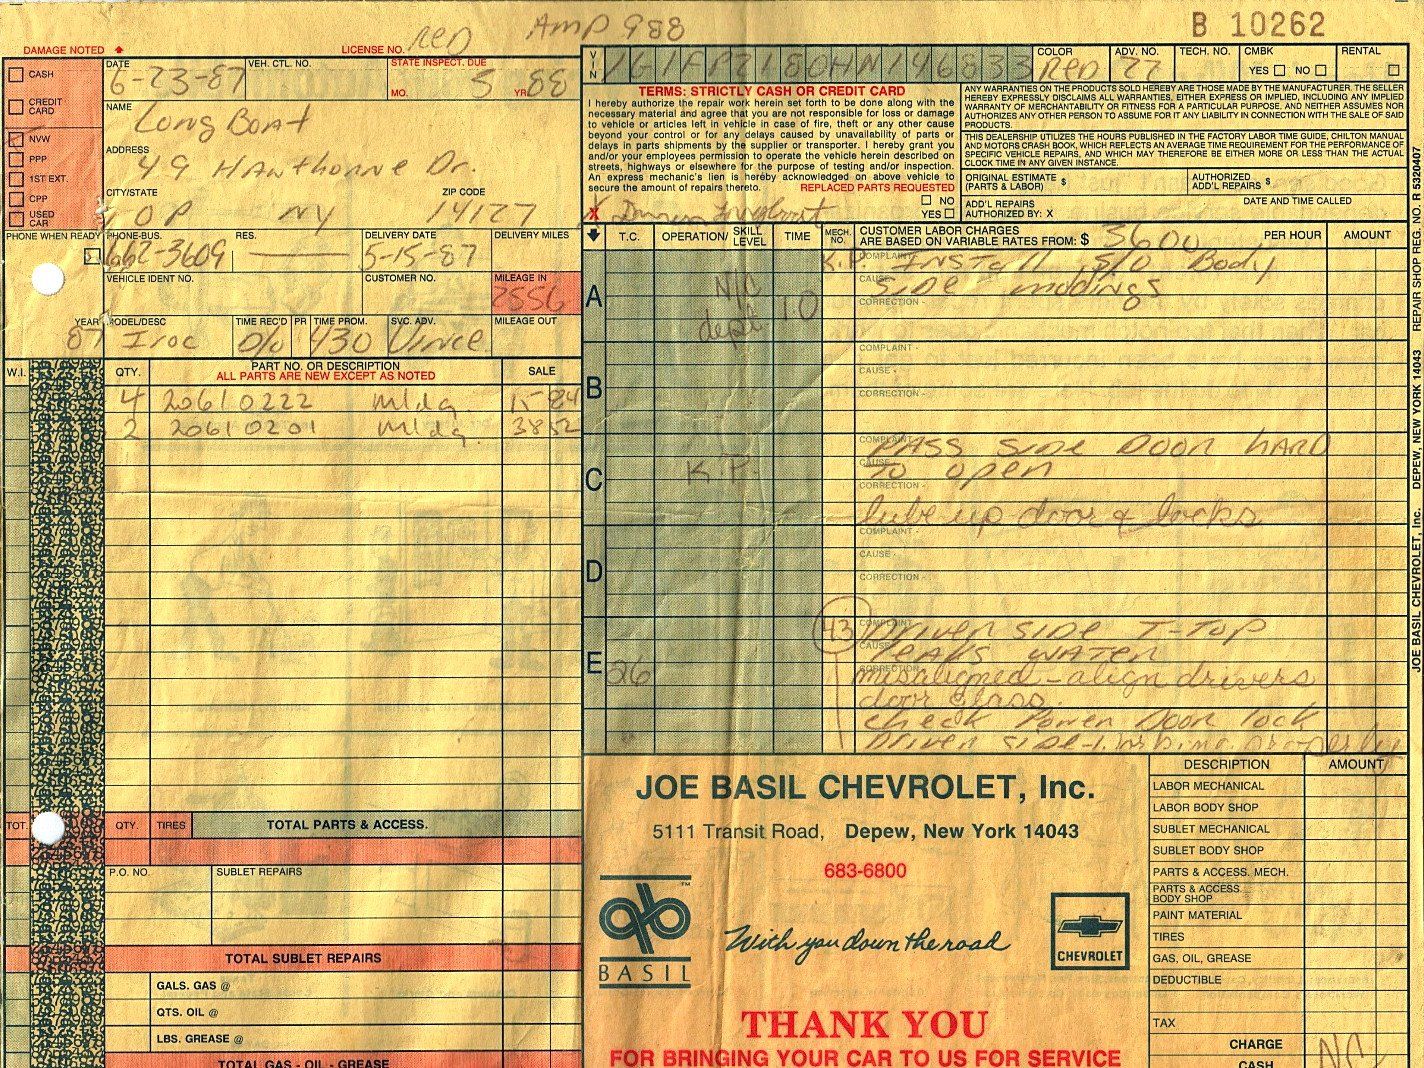 RED AMP 988 B 10262
DAMAGE NOTED LICENSE NO.
CASH
CREDIT CARD
NVW
PPP
1ST EXT.
CPP
USED CAR
DATE 6-23-87 VEH. CTL. NO. STATE INSPECT. DUE MO. 5 YR. 88
NAME Long Boat
ADDRESS 49 Hawthorne Dr.
CITY/STATE OP NY ZIP CODE 14127
PHONE WHEN READY PHONE-BUS. 662-3609 RES. DELIVERY DATE 5-15-87 DELIVERY MILES
VEHICLE IDENT NO. CUSTOMER NO. MILEAGE IN 2556
YEAR 87 MODEL/DESC Iroc TIME REC'D D/O PR TIME PROM. 430 SVC. ADV. Vince MILEAGE OUT
W.I. QTY. PART NO. OR DESCRIPTION SALE
ALL PARTS ARE NEW EXCEPT AS NOTED
4 20610222 mldg. 15 84
2 20610201 mldg. 38 52
TOT. QTY. TIRES TOTAL PARTS & ACCESS.
P.O. NO. SUBLET REPAIRS
TOTAL SUBLET REPAIRS
GALS. GAS @
QTS. OIL @
LBS. GREASE @
TOTAL GAS - OIL - GREASE
VIN 1G1FP2180HN146833 COLOR RED ADV. NO. 27 TECH. NO. CMBK YES NO RENTAL
TERMS: STRICTLY CASH OR CREDIT CARD
I hereby authorize the repair work herein set forth to be done along with the
necessary material and agree that you are not responsible for loss or damage
to vehicle or articles left in vehicle in case of fire, theft or any other cause
beyond your control or for any delays caused by unavailability of parts or
delays in parts shipments by the supplier or transporter. I hereby grant you
and/or your employees permission to operate the vehicle herein described on
streets, highways or elsewhere for the purpose of testing and/or inspection.
An express mechanic's lien is hereby acknowledged on above vehicle to
secure the amount of repairs thereto. REPLACED PARTS REQUESTED
NO
X YES
ANY WARRANTIES ON THE PRODUCTS SOLD HEREBY ARE THOSE MADE BY THE MANUFACTURER. THE SELLER
HEREBY EXPRESSLY DISCLAIMS ALL WARRANTIES, EITHER EXPRESS OR IMPLIED, INCLUDING ANY IMPLIED
WARRANTY OF MERCHANTABILITY OR FITNESS FOR A PARTICULAR PURPOSE, AND NEITHER ASSUMES NOR
AUTHORIZES ANY OTHER PERSON TO ASSUME FOR IT ANY LIABILITY IN CONNECTION WITH THE SALE OF SAID
PRODUCTS.
THIS DEALERSHIP UTILIZES THE HOURS PUBLISHED IN THE FACTORY LABOR TIME GUIDE, CHILTON MANUAL
AND MOTORS CRASH BOOK, WHICH REFLECTS AN AVERAGE TIME REQUIREMENT FOR THE PERFORMANCE OF
SPECIFIC VEHICLE REPAIRS, AND WHICH MAY THEREFORE BE EITHER MORE OR LESS THAN THE ACTUAL
CLOCK TIME IN ANY GIVEN INSTANCE.
ORIGINAL ESTIMATE (PARTS & LABOR) $ AUTHORIZED ADD'L REPAIRS $
ADD'L REPAIRS AUTHORIZED BY: X DATE AND TIME CALLED
T.C. OPERATION/ SKILL LEVEL TIME MECH. NO. CUSTOMER LABOR CHARGES ARE BASED ON VARIABLE RATES FROM: $ 3600 PER HOUR AMOUNT
A N/C dept 10 K.P. COMPLAINT - INSTALL S/O Body
CAUSE - SIDE moldings
CORRECTION -
B COMPLAINT -
CAUSE -
CORRECTION -
C K.P. COMPLAINT - PASS SIDE DOOR HARD
CAUSE - TO open
CORRECTION -
lube up door & locks
D COMPLAINT -
CAUSE -
CORRECTION -
E 26 43 COMPLAINT - DRIVER SIDE T-TOP
CAUSE - LEAKS WATER
CORRECTION - misaligned - align drivers
door glass.
check Power Door lock
Driver side - properly
JOE BASIL CHEVROLET, Inc.
5111 Transit Road, Depew, New York 14043
683-6800
BASIL
With you down the road
CHEVROLET
THANK YOU
FOR BRINGING YOUR CAR TO US FOR SERVICE
DESCRIPTION AMOUNT
LABOR MECHANICAL
LABOR BODY SHOP
SUBLET MECHANICAL
SUBLET BODY SHOP
PARTS & ACCESS. MECH.
PARTS & ACCESS. BODY SHOP
PAINT MATERIAL
TIRES
GAS, OIL, GREASE
DEDUCTIBLE
TAX
CHARGE NC
CASH
JOE BASIL CHEVROLET, Inc. DEPEW, NEW YORK 14043 REPAIR SHOP REG. NO. R 5320407